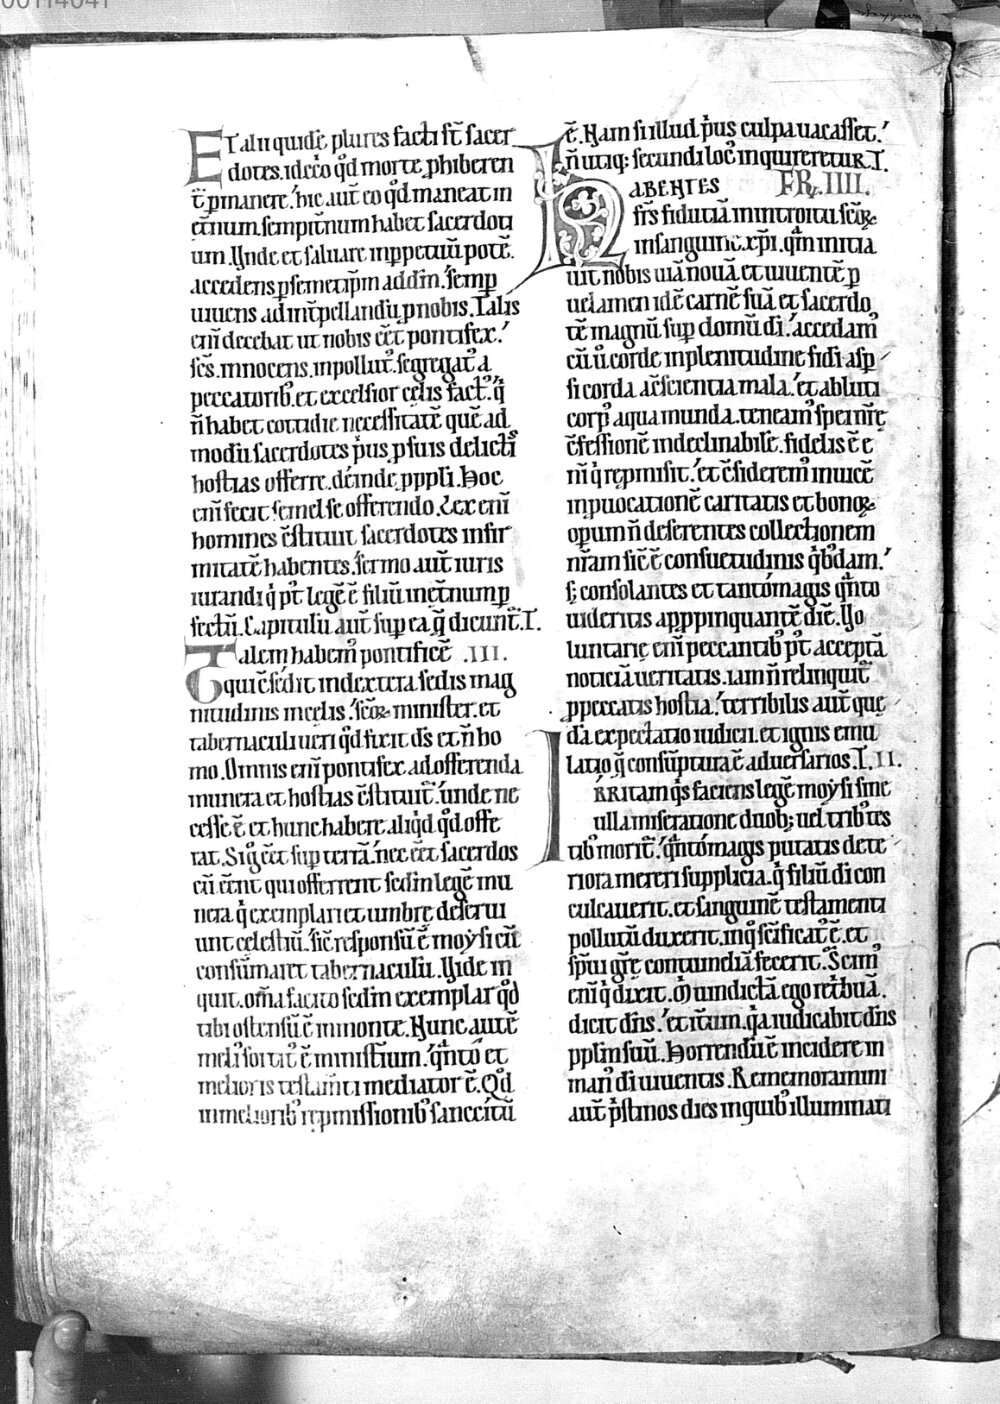 ET alii quidē plures facti st̄ sacer
dotes. idcc̓o qd̓ morte phiberen
t̄ pmanere. hic aut̄ eo qd̓ maneat in
et̄num sempit̄num habet sacerdoti
um. Vnde et saluare inppetuū potē.
accedens p semetip̄m ad dm̄. semp
uiuens ad int̄pellandū p nobis. Talis
eni̅ decebat ut nobis eēt pontifex.
sc̄s. innocens. inpollut᷒. segregat᷒ a
peccatorib᷒. et excelsior celis fact᷒. q̓
n̄ habet cottidie necessitatē quē ad
modū sacerdotes p̓us p suis delicti
hostias offerre. deinde p ppl̓i. Hoc
eni̅ fecit semel se offerendo. Lex eni̅
homines c̄stituit sacerdotes infir
mitatē habentes. sermo aut̄ iuris
iurandi q̓ pt᷒ legē ē filiū inet̄num p
fectū. Capitulū aut̄ sup ea q̄ dicunt̄. T.
Talem habem᷒ pontificē .III.
qui c̄sedit indextera sedis mag
nitudinis incelis. sc̄oꝝ minister. et
tabernaculi ueri qd̓ fixit dn̄s et n̄ ho
mo. Omnis eni̅ pontifex ad offerenda
munera et hostias c̄stituit̄. unde ne
cesse ē et hunc habere aliq̓d qd̓ offe
rat. Sig̓ eēt sup terrā. nec eēt sacerdos
cū eēnt qui offerrent sedm̄ legē mu
nera. q̓ exemplari et umbrę deserui
unt celestiū. sic̄ responsū ē moysi cū
consūmaret tabernaculū. Vide in
quit. om̄a facito sedm̄ exemplar qd̓
tibi ostensū ē in monte. Nunc autē
meli᷒ sortit᷒ ē minist̄ium. q̓nto et
melioris testam̄ti mediator ē. Qd̓
in meliorib᷒ repmissionib᷒ sanccitū
ē. Nam si illud p̓us culpa uacasset.
n̄ utiq; secundi loc᷒ inquireretur. T.
HABENTES FR̄. IIII.
fr̄s fiduciā in introitu sc̄oꝝ
in sanguine xp̄i. qm̄ initia
uit nobis uiā nouā et uiuentē p
uelamen idē carnē suā et sacerdo
tē magnū sup domū di̅. accedam᷒
cū ū corde in plenitudine fidi asp
si corda a c̄scientia mala. et abluti
corp᷒ aqua munda. teneam᷒ spei nr̄ę
c̄fessionē indeclinabilē. fidelis ē e
ni̅ q̓ repmisit. et c̄siderem᷒ inuicē
in puocationē caritatis et bonoꝝ
opum n̄ deserentes collectionem
nr̄am sic̄ ē consuetudinis q̓bdam.
s; consolantes et tantomagis q̓nto
uideritis appropinquantē diē. Vo
luntarię eni̅ peccantib᷒ pt᷒ acceptā
noticiā ueritatis. iam n̄ relinquit̄
p peccatis hostia. terribilis aut̄ quę
dā expectatio iudicii. et ignis emu
latio q̄ consūptura ē aduersarios. T. II.
IRRITam q̓s faciens legē moysi sine
ulla miseratione duob; uel trib᷒ tes
tib᷒ morit̄. q̓ntomagis putatis dete
riora mereri supplicia. q̓ filiū di̅ con
culcauerit. et sanguinē testamenti
pollutū duxerit. in q᷒ sc̄ificat᷒ ē. et
sp̄ui gr̄e contumeliā fecerit. Scim᷒
eni̅ q̓ dixit. Mi uindictā ego retbuā.
dicit dn̄s. et it̄um. q̓a iudicabit dn̄s
ppl̄m suū. Horrendū ē incidere in
man᷒ di̅ uiuentis. Rememoramini
aut̄ p̓stinos dies in quib᷒ illuminati